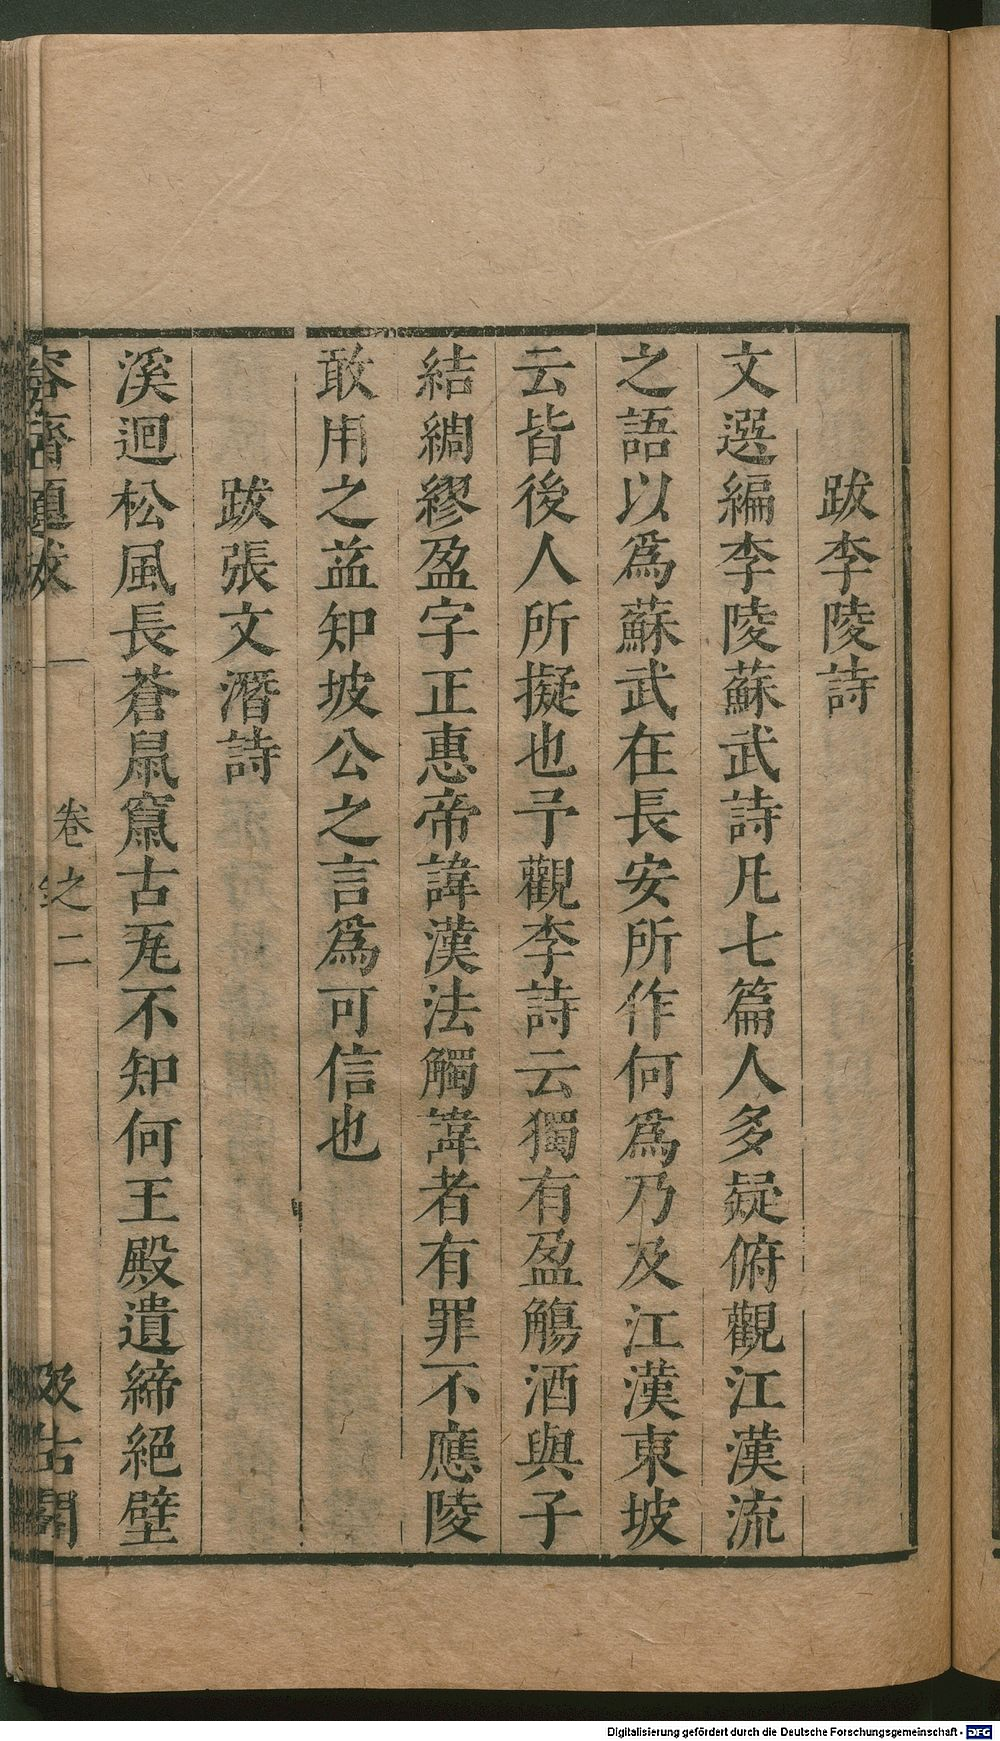 跋李陵詩
文選編李陵蘇武詩凡七篇人多疑俯觀江漢流
之語以爲蘇武在長安所作何爲乃及江漢東坡
云皆後人所擬也予觀李詩云獨有盈觴酒與子
結綢繆盈字正惠帝諱漢法觸諱者有罪不應陵
敢用之益知坡公之言爲可信也
跋張文潛詩
溪迴松風長蒼鼠竄古瓦不知何王殿遺締絕壁
容齋題跋
卷之二
汲古閣
Digitalisierung gefördert durch die Deutsche Forschungsgemeinschaft - DFG